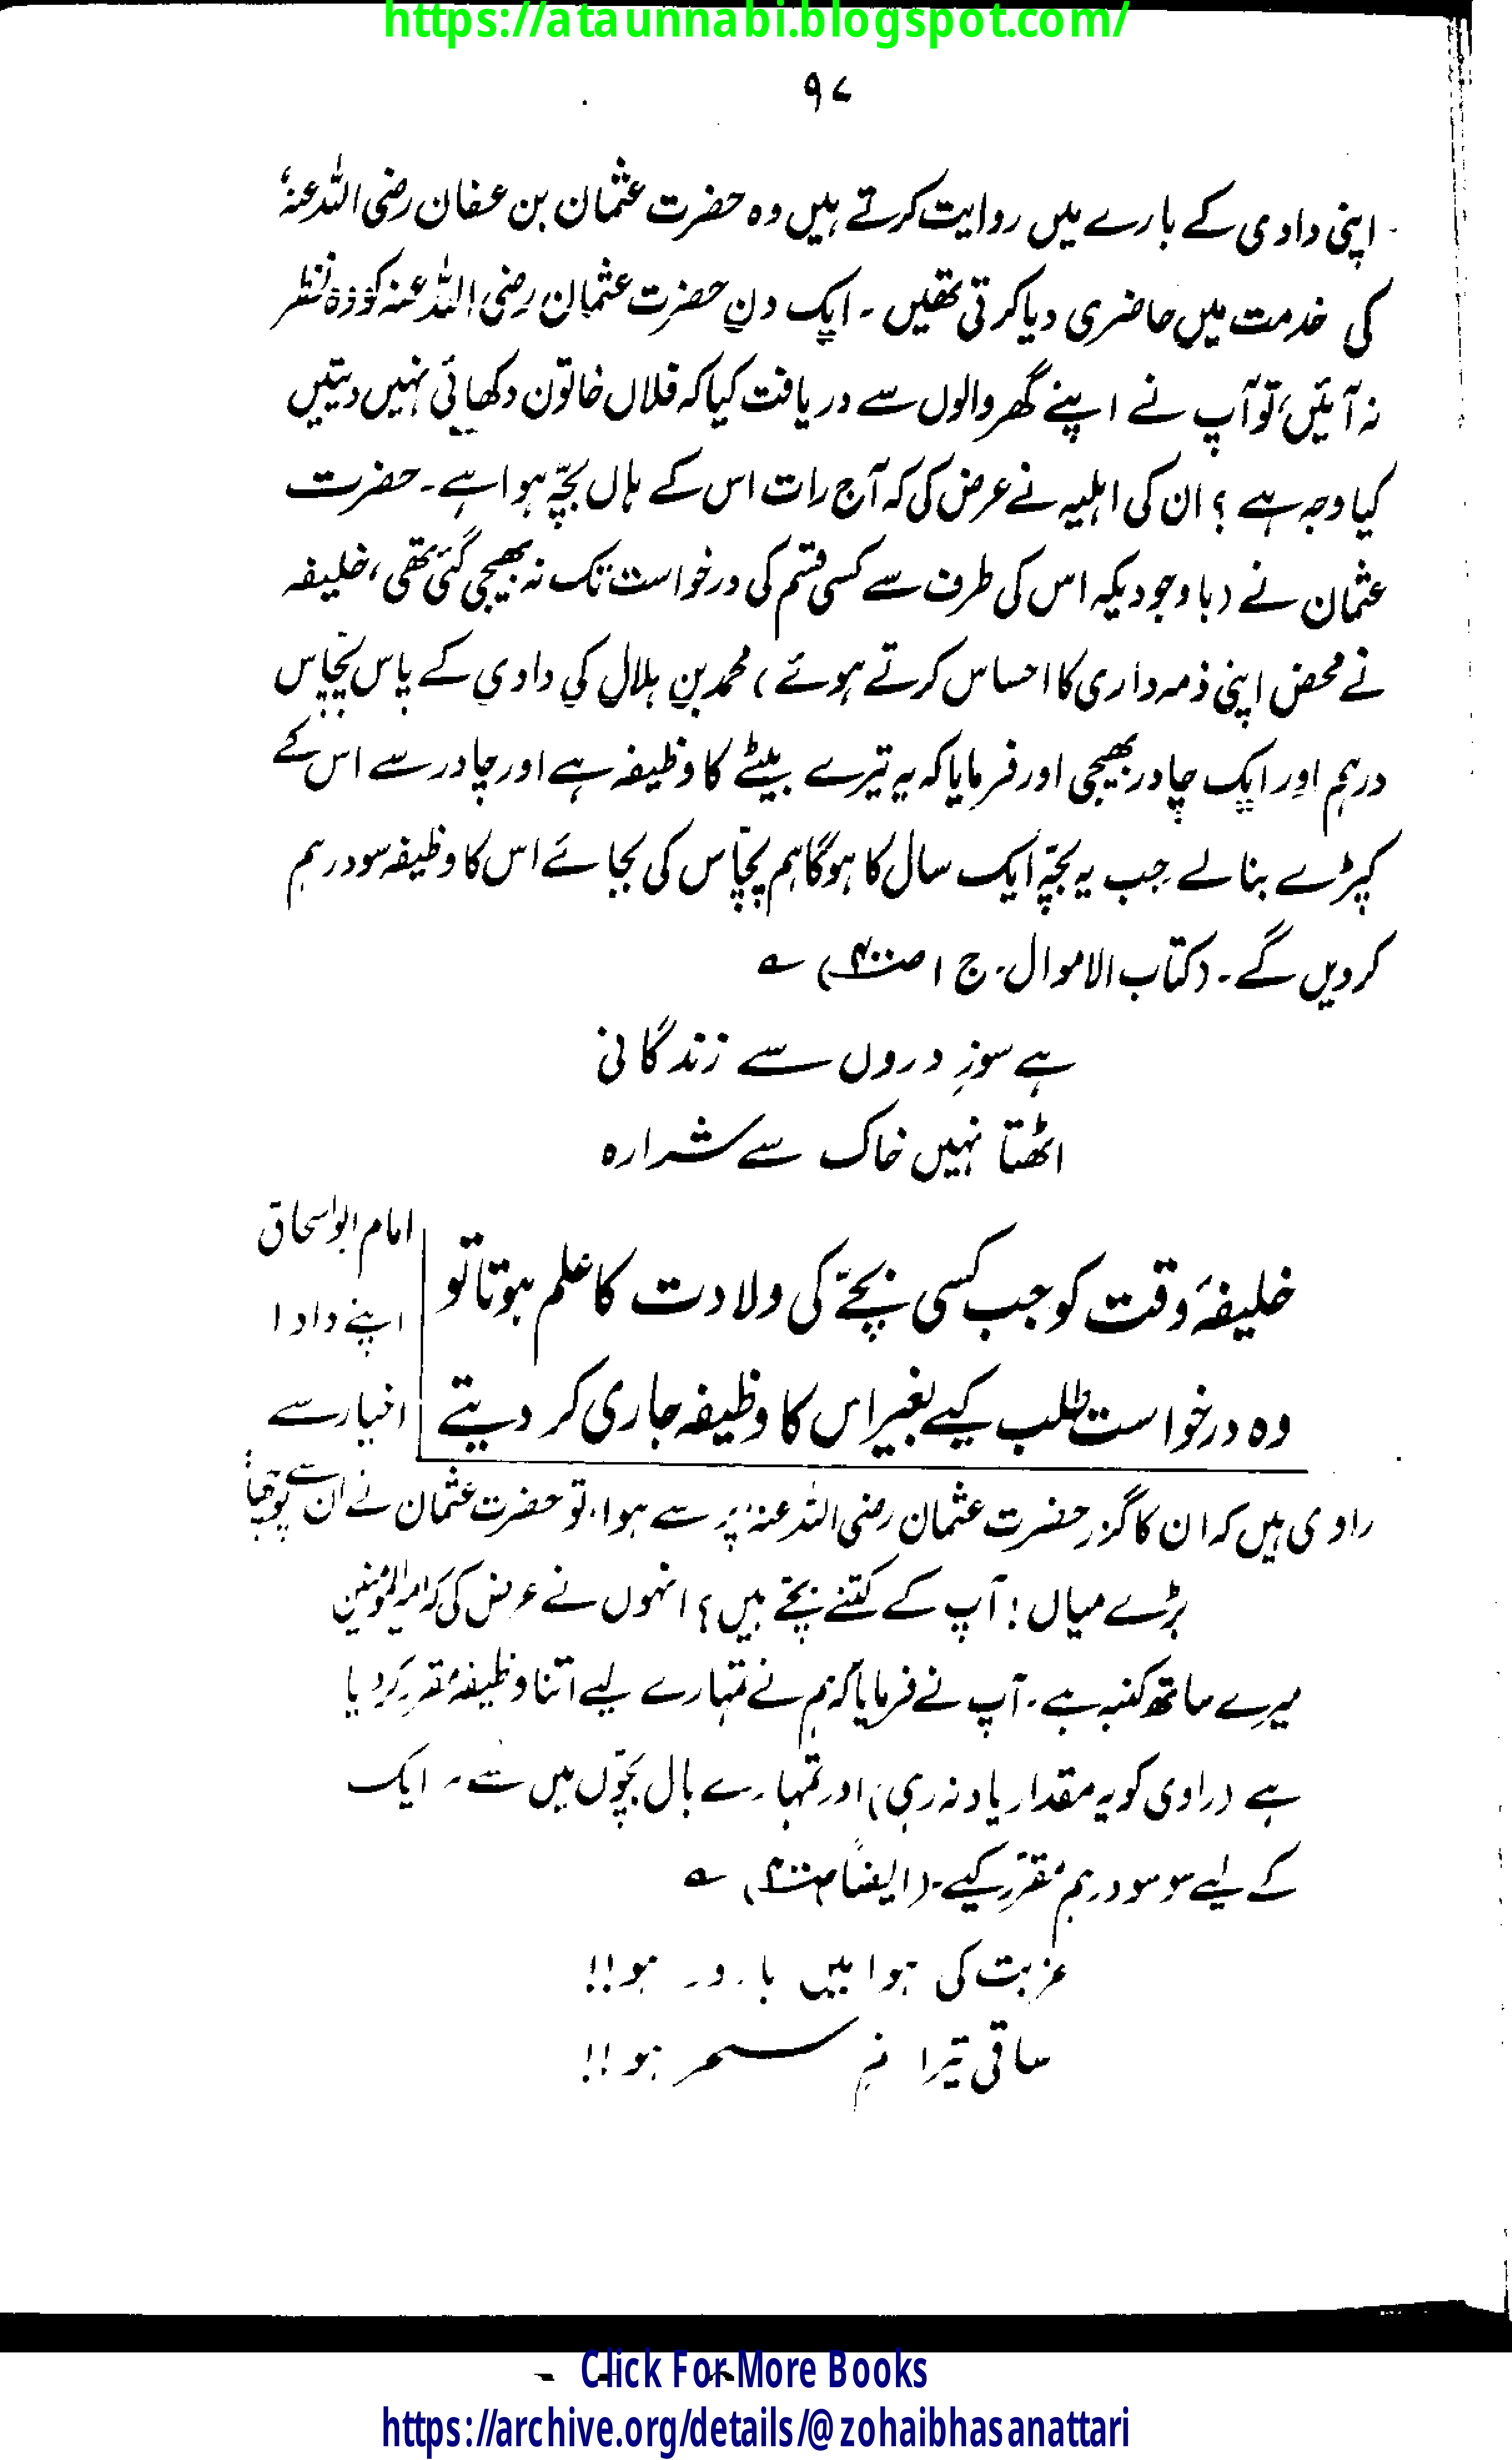 https://ataunnabi.blogspot.com/
۹۷
اپنی دادی کے بارے میں روایت کرتے ہیں وہ حضرت عثمان بن عفان رضی اللہ عنہ
کی خدمت میں حاضری دیا کرتی تھیں ۔ ایک دن حضرت عثمان رضی اللہ عنہ کو وہ نظر
نہ آئیں، تو آپ نے اپنے گھر والوں سے دریافت کیا کہ فلاں خاتون دکھائی نہیں دیتیں
کیا وجہ ہے ؟ ان کی اہلیہ نے عرض کی کہ آج رات اس کے ہاں بچّہ ہوا ہے ۔ حضرت
عثمان نے (باوجودیکہ اس کی طرف سے کسی قسم کی درخواست تک نہ بھیجی گئی تھی، خلیفہ
نے محض اپنی ذمہ داری کا احساس کرتے ہوئے) محمد بن ہلال کی دادی کے پاس پچّاس
درہم اور ایک چادر بھیجی اور فرمایا کہ یہ تیرے بیٹے کا وظیفہ ہے اور چادر سے اس کے
کپڑے بنا لے جب یہ بچّہ ایک سال کا ہوگا ہم پچّاس کی بجائے اس کا وظیفہ سو درہم
کر دیں گے ۔ (کتاب الاموال ۔ ج ۱ ص
ہے سوزِ دروں سے زندگانی
اٹھتا نہیں خاک سے شرارہ
خلیفۂ وقت کو جب کسی بچّے کی ولادت کا علم ہوتا تو
وہ درخواست طلب کیے بغیر اس کا وظیفہ جاری کر دیتے
امام ابو اسحاق
اپنے دادا
اخیار سے
راوی ہیں کہ ان کا گزر حضرت عثمان رضی اللہ عنہ پر سے ہوا، تو حضرت عثمان نے ان سے پوچھا:
بڑے میاں ! آپ کے کتنے بچّے ہیں ؟ انہوں نے عرض کی کہ امیرالمؤمنین
میرے ساتھ کنبہ ہے ۔ آپ نے فرمایا کہ ہم نے تمہارے لیے اتنا وظیفہ مقرر کر دیا
ہے (راوی کو یہ مقدار یاد نہ رہی) اور تمہارے بال بچّوں میں سے ہر ایک
کے لیے سو سو درہم مُقرّر کیے ۔ (ایضاً
غربت کی ہوا میں بارور ہو !!
ساقی تیرا نم سحر ہو !!
Click For More Books
https://archive.org/details/@zohaibhasanattari